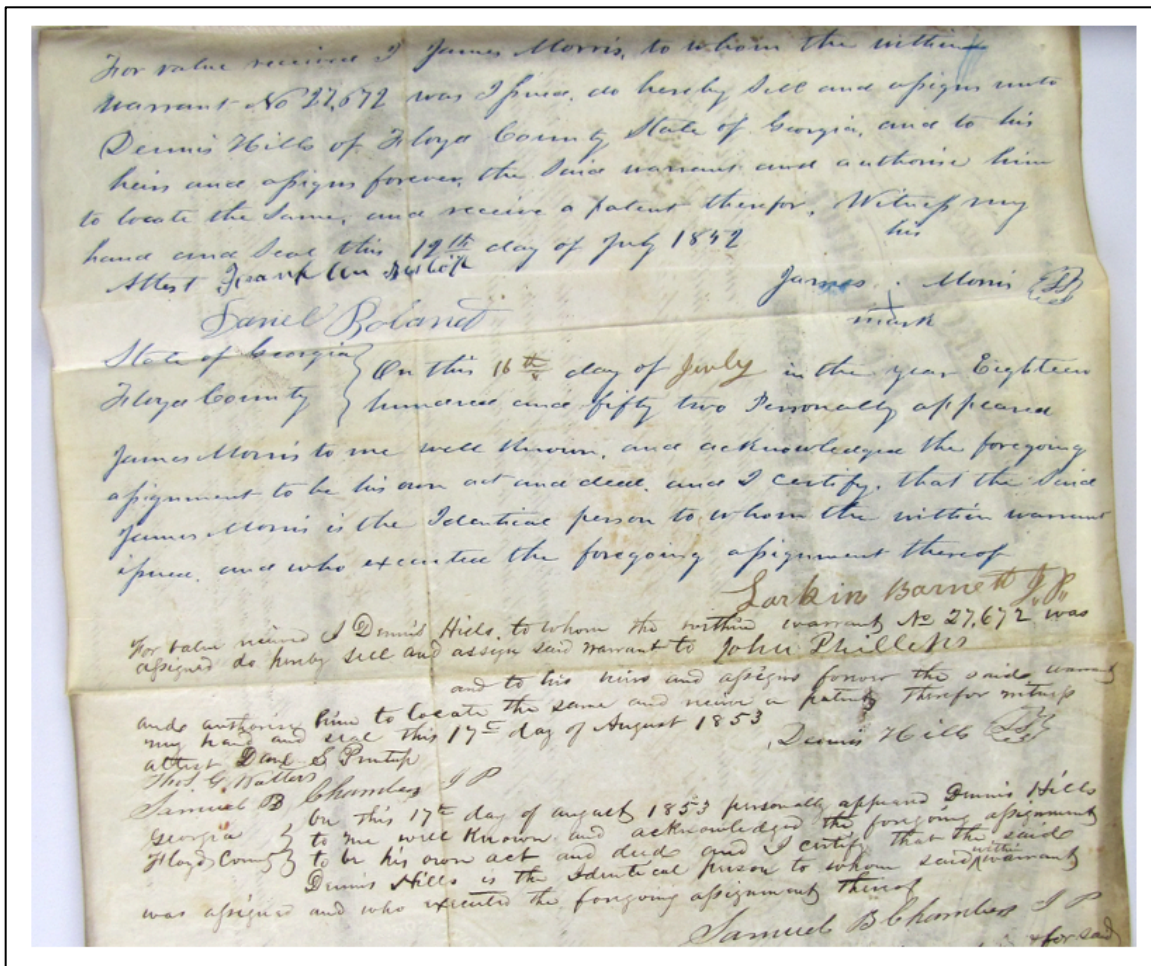 For value received I James Morris, to whom the within
warrant No 27,672 was Issued, do hereby Sell and assign unto
Dennis Hills of Floyd County State of Georgia, and to his
heirs and assigns forever, the Said warrant and authorise him
to locate the Same, and receive a patent therefor, Witness my
hand and Seal this 12th day of July 1852
his
Attest
James Morris
mark
Daniel Boland
State of Georgia
Floyd County
On this 16th day of July in the year Eighteen
hundred and fifty two Personally appeared
James Morris to me well known, and acknowledged the foregoing
assignment to be his own act and deed, and I certify, that the Said
James Morris is the Identical person to whom the within warrant
issued, and who executed the foregoing assignment thereof
Larkin Barnett J.P.
For value received I Dennis Hills, to whom the within warrant No 27,672 was
assigned do hereby sell and assign said warrant to John Phillips
and to his heirs and assigns forever the said warrant
and authorise him to locate the same and receive a patent therefor witness
my hand and seal this 17th day of August 1853
Dennis Hills
attest Danl S Printup
Thos G Watters
Samuel B Chambers J P
Georgia
Floyd County
On this 17th day of august 1853 personally appeard Dennis Hills
to me well known and acknowledged the foregoing assignment
to be his own act and deed and I certify that the said
Dennis Hills is the Identical person to whom said within warrant
was assigned and who executed the foregoing assignment thereof
Samuel B Chambers J P
for said